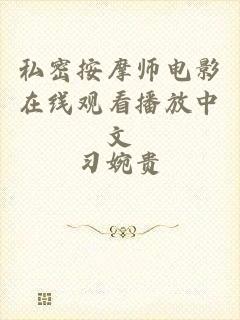 私密按摩师电影
在线观看播放中
文
习婉贵